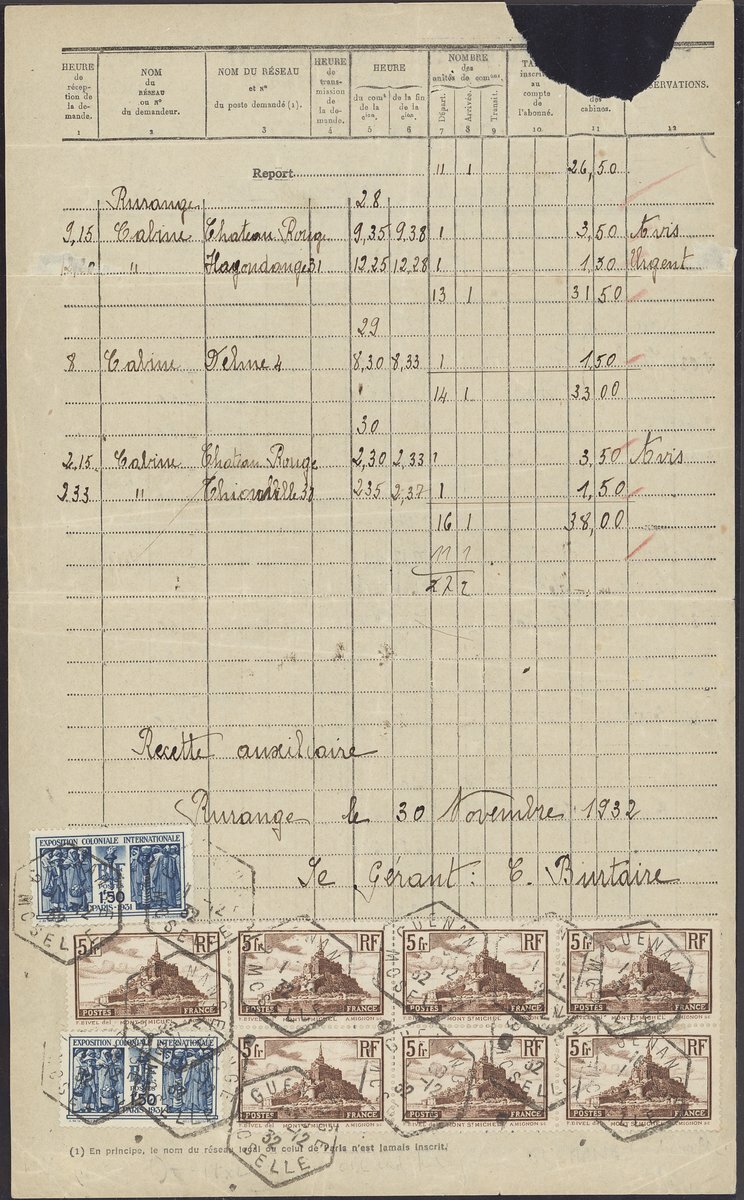 HEURE de récep- tion de la de- mande. NOM du RÉSEAU ou N° du demandeur. NOM DU RÉSEAU et N° du poste demandé (1). HEURE de trans- mission de la de- mande. HEURE du comt de la cion. de la fin de la cion. NOMBRE des unités de comons. Départ. Arrivée. Transit. inscrit au compte de l'abonné. des cabines.
1 2 3 4 5 6 7 8 9 10 11 12
Report 11 1 26,50
Rurange 28
9,15 Cabine Chateau Rouge 9,35 9,38 1 3,50 Avis
" Hagondange 31 12,25 12,28 1 1,50 Urgent
13 1 31 50
29
8 Cabine Delme 4 8,30 8,33 1 1,50
14 1 33 00
30
2,15 Cabine Chateau Rouge 2,30 2,33 1 3,50 Avis
2 33 " Thionville 37 2 35 2,37 1 1,50
16 1 38,00
11 1
Recette auxiliaire
Rurange le 30 Novembre 1932
Le Gérant: C. Burtaire
EXPOSITION COLONIALE INTERNATIONALE
POSTES
1f50
PARIS-1931
5fr RF 5fr RF 5fr RF 5fr RF
POSTES FRANCE POSTES FRANCE POSTES FRANCE POSTES FRANCE
MONT ST MICHEL
EXPOSITION COLONIALE INTERNATIONALE
POSTES
1f50
PARIS 1931
5fr RF 5fr RF 5fr RF
POSTES FRANCE POSTES FRANCE POSTES FRANCE
MOSELLE
(1) En principe, le nom du réseau local ou celui de Paris n'est jamais inscrit.